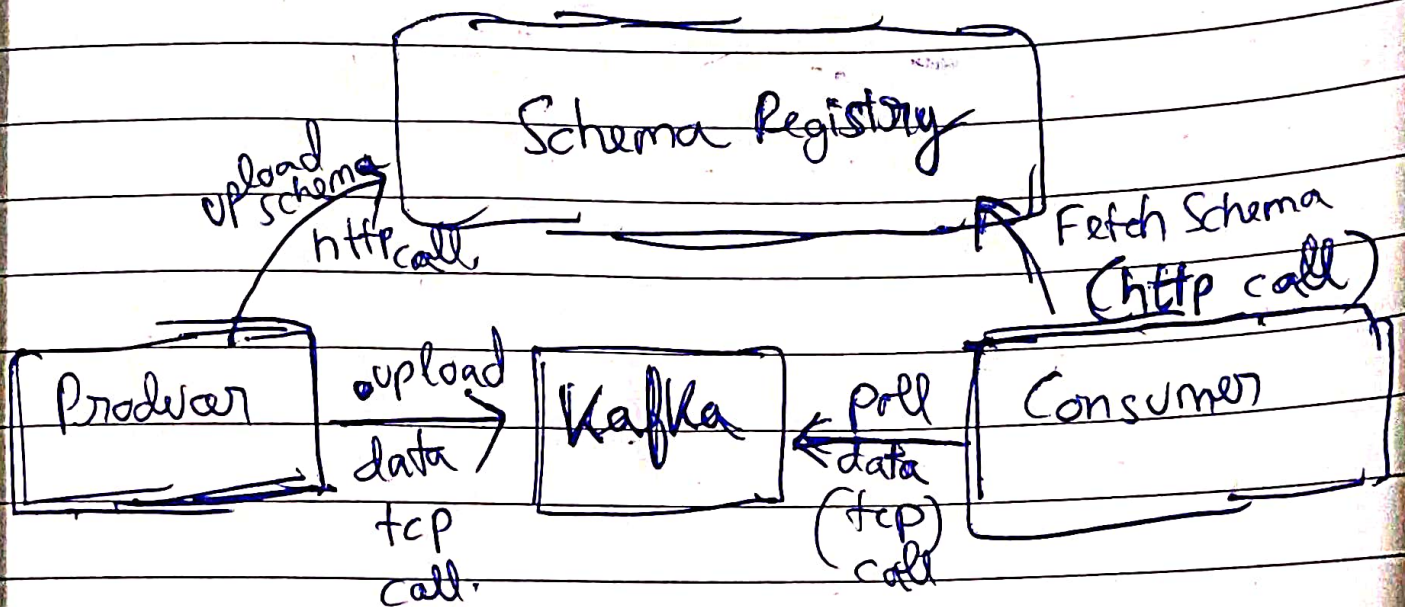 Schema Registry
upload
schema
http call
Fetch Schema
(http call)
Producer
upload
data
tcp
call.
Kafka
poll
data
(tcp)
call
Consumer